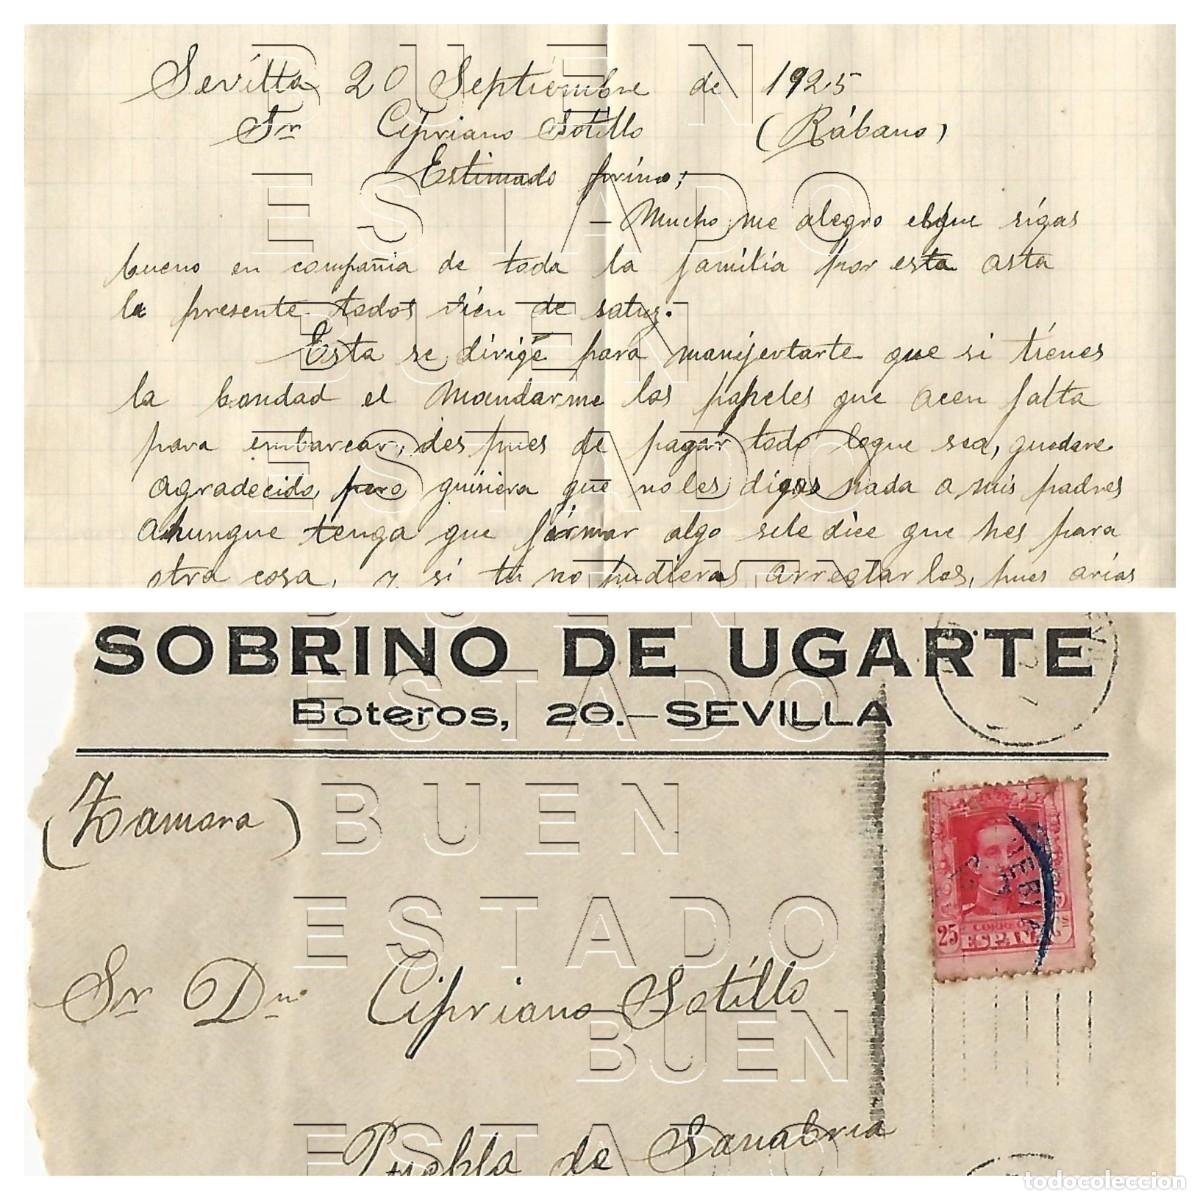 Sevilla 20 Septiembre de 1925
Sr Cipriano Sotillo (Rábano)
Estimado primo;
Mucho me alegro elque sigas
bueno en compañia de toda la familia por esta asta
la presente todos vien de saluz.
Esta se dirige para manifestarte que si tienes
la bondad el mandarme los papeles que acen falta
para embarcar, des pues de pagar todo loque sea, quedare
agradecido, pero quisiera que noles digas nada a mis padres
ahunque tenga que firmar algo sele dice que hes para
otra cosa, y si tu no pudieras arreglarlos, pues arias
SOBRINO DE UGARTE
Boteros, 20.-SEVILLA
(Zamora)
Sr Dn Cipriano Sotillo
Puebla de Sanabria
25 CORREOS
ESPAÑA
BUEN
ESTADO
BUEN
ESTADO
BUEN
ESTADO
BUEN
ESTADO
BUEN
ESTADO
todocoleccion